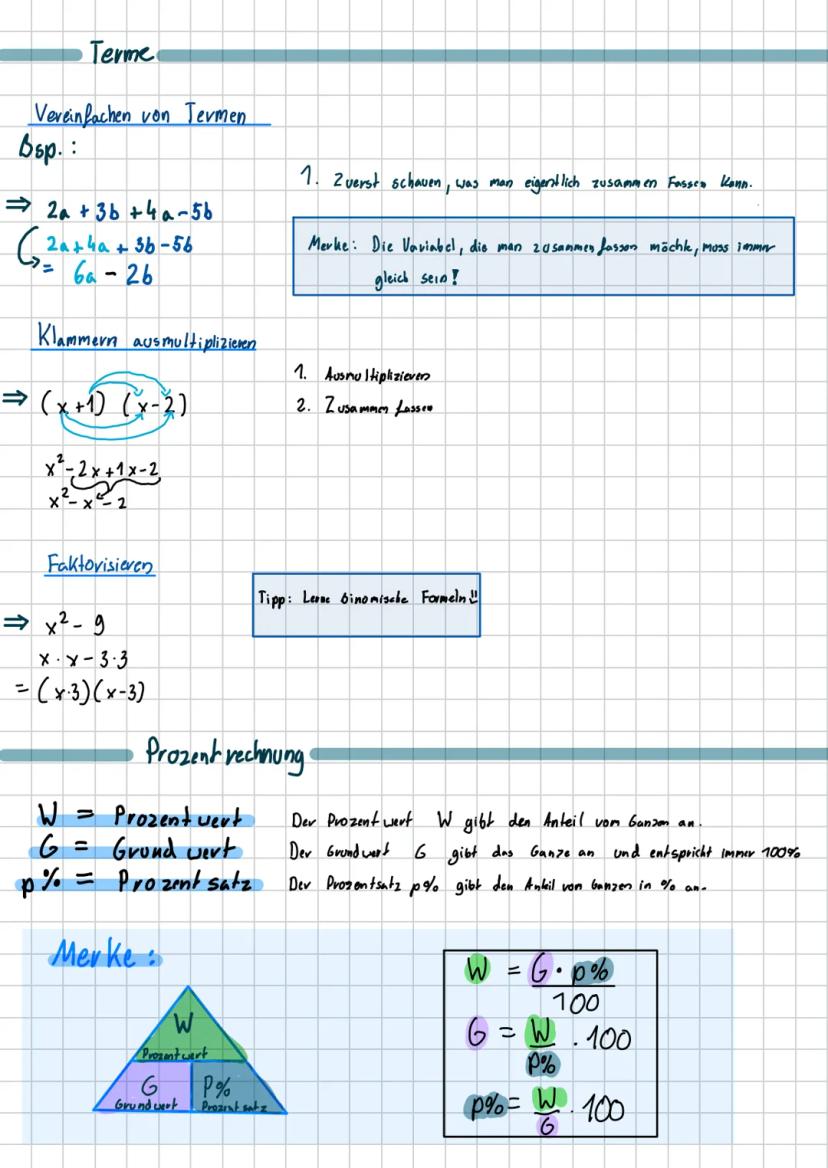 Terme
Vereinfachen von Termen
Bsp.:
1. Zuerst schauen, was man eigentlich zusammen Fassen kann.
⇒ 2a + 3b + 4a - 5b
2a + 4a + 3b - 5b
= 6a - 2b
Merke: Die Variabel, die man zusammenfassen möchte, muss immer
gleich sein!
Klammern ausmultiplizieren
⇒ (x+1) (x-2)
1. Ausmultiplizieren
2. Zusammen fassen
x² - 2x + 1x - 2
x² - x - 2
Faktorisieren
Tipp: Lerne binomische Formeln!!
⇒ x² - 9
x · x - 3·3
= (x·3)(x-3)
Prozentrechnung
W = Prozentwert Der Prozentwert W gibt den Anteil vom Ganzen an.
G = Grundwert Der Grundwert G gibt das Ganze an und entspricht immer 100%
p% = Prozentsatz Der Prozentsatz p% gibt den Anteil von Ganzen in % an.
Merke:
W
Prozentwert
G P%
Grundwert Prozentsatz
W = G · p%
100
G = W · 100
p%
p% = W · 100
G